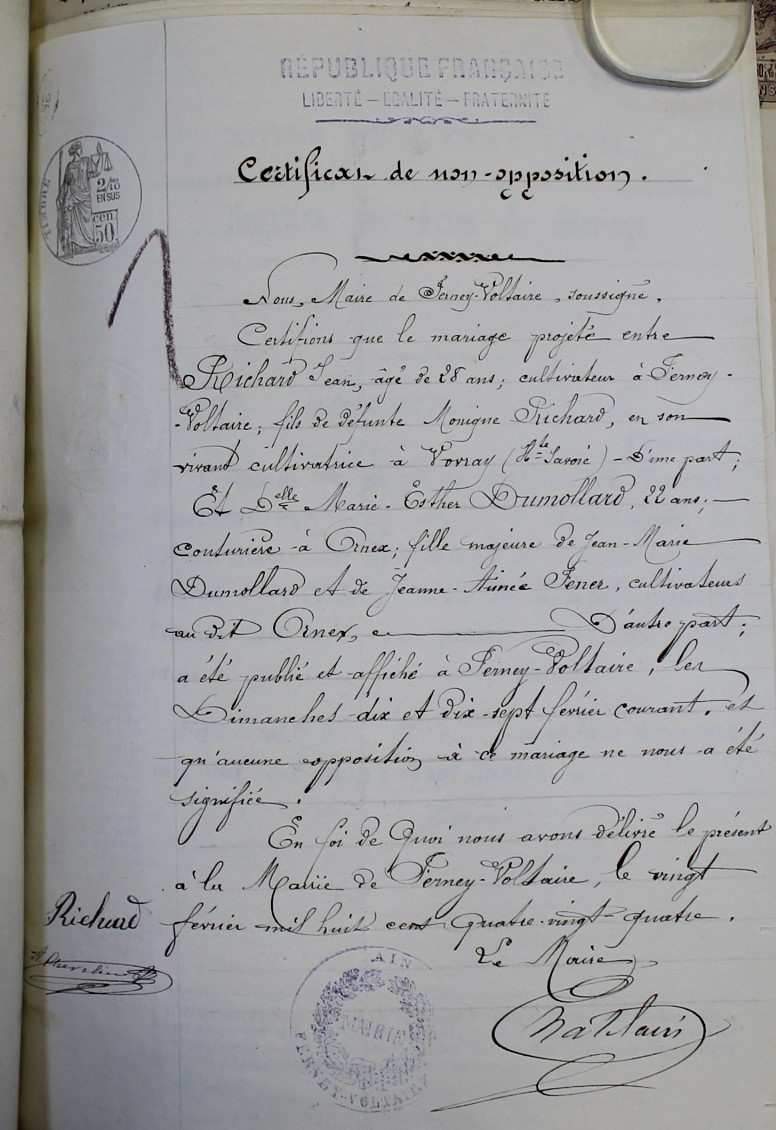 RÉPUBLIQUE FRANÇAISE
LIBERTÉ — EGALITÉ — FRATERNITÉ
Certificat de non-opposition.
TIMBRE
2/10
EN SUS
cen
50
Nous, Maire de Ferney-Voltaire, soussigné,
Certifions que le mariage projeté entre
Richard Jean, âgé de 28 ans; cultivateur à Ferney-
-Voltaire; fils de défunte Monique Richard, en son
vivant cultivatrice à Vovray (Hte Savoie) - D'une part;
Et Delle Marie-Esther Dumollard, 22 ans;
couturière à Ornex; fille majeure de Jean-Marie
Dumollard et de Jeanne-Aimée Fener, cultivateurs
au dit Ornex, D'autre part;
a été publié et affiché à Ferney-Voltaire, les
Dimanches dix et dix-sept février courant, et
qu'aucune opposition à ce mariage ne nous a été
signifiée.
En foi de quoi nous avons délivré le présent
à la Mairie de Ferney-Voltaire, le vingt
février mil huit cent quatre-vingt-quatre.
Richard
Le Maire
AIN
MAIRIE
FERNEY-VOLTAIRE